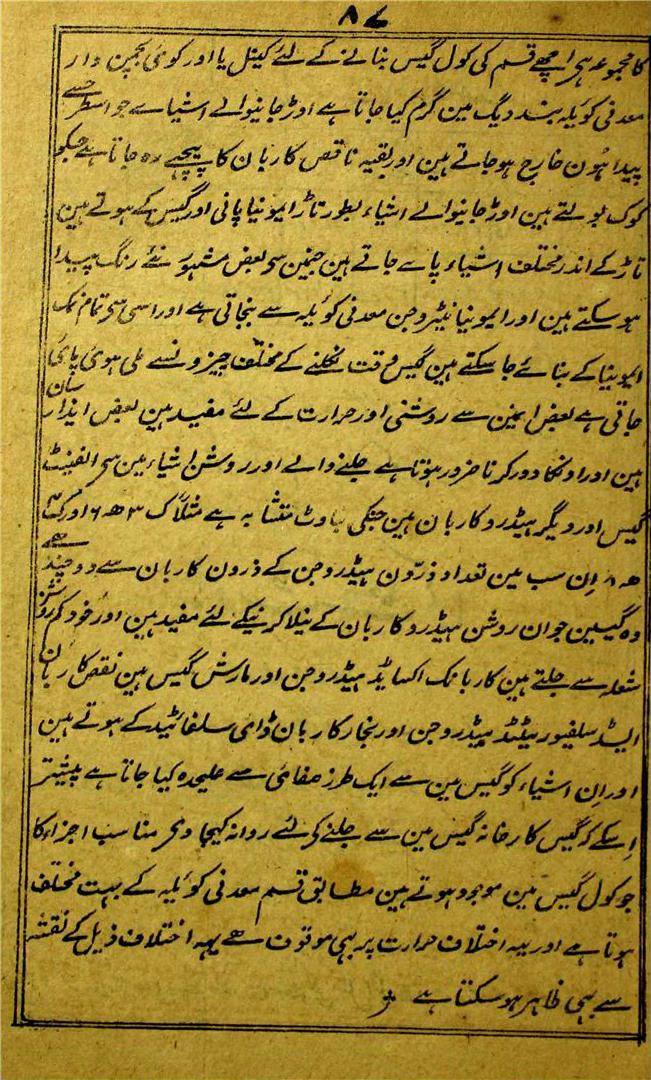 ۸۷
کا مجموعہ ہی اچھے قسم کی کول گیس بنانے کے لئے کینل یا اور کوئی بچپن دار
معدنی کوئیلہ بند دیگ مین گرم کیا جاتا ہے اوڑجانیوالے اشیا سے جو اسطرحسے
پیدا ہُون خارج ہوجاتے ہین اور بقیہ ناقص کاربان کا پیچہے رہ جاتا ہے جسکو
کوک بولتے ہین اوڑجانیوالے اشیاء بطور تاڑ ایمونیا پانی اور گیس کے ہوتے ہین
تاڑ کے اندر مختلف اشیاء پاے جاتے ہین جنمین سی بعض مشہور نئے رنگ پیدا
ہوسکتے ہین اور ایمونیا نیٹروجن معدنی کوئیلہ سے بنجاتی ہے اور اسی سی تمام نمک
ایمونیا کے بنائے جا سکتے ہین گیس وقت نکلنے کے مختلف چیزونسے ملی ہوئی پائی
جاتی ہے بعض ایمنین سے روشنی اور حرارت کے لئے مفید ہین بعض ایذا رسان
ہین اور اونکا دور کرنا ضرور ہوتا ہے جلنے والے اور روشن اشیاء مین سی الفینٹ
گیس اور دیگر ہیڈروکاربان ہین جنکی بناوٹ متشابہ ہے مثلاً ک ۳ ھ ۶ اور ک ۴
ھ ۸ اِن سب مین تعداد ذرّون ہیڈروجن کے ذرون کاربان سے دوچند ہے
وہ گیسین جو ان روشن ہیڈروکاربان کے پتلا کرنیکے لئے مفید ہین اور خود کم روشن
شعلہ سے جلتے ہین کاربانک اکسایڈ ہیڈروجن اور مارش گیس ہین نقص کاربان
ایسڈ سلفیوریٹڈ ہیڈروجن اور بخار کاربان ڈای سلفائیڈ کے ہوتے ہین
اور اِن اشیاء کو گیس مین سے ایک طرز صفائی سے علیحدہ کیا جاتا ہے پیشتر
اِسکے کہ گیس کارخانہ گیس مین سے جلنے کی لئے روانہ کیجاوی مناسب اجزاء کا
جو کول گیس مین موجود ہوتے ہین مطابق قسم معدنی کوئیلہ کے بہت مختلف
ہوتا ہے اور یہہ اختلاف حرارت پر بہی موقوف ہے یہہ اختلاف ذیل کے نقشہ
سے بہی ظاہر ہوسکتا ہے